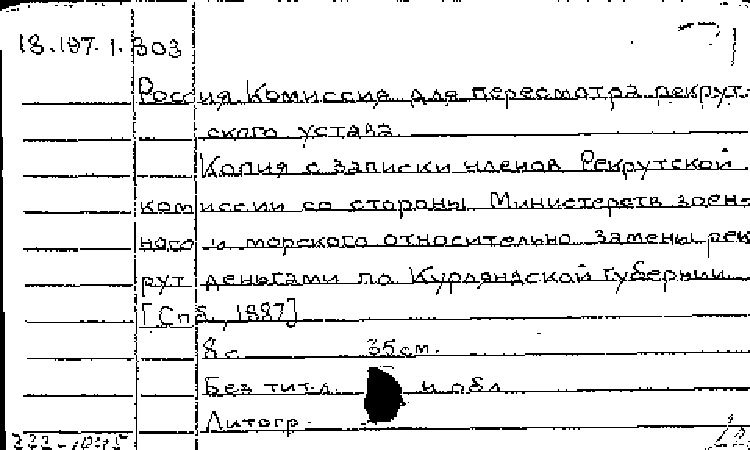 18.197.1.303
Россия. Комиссия для пересмотра рекрут-
ского устава.
Копия с записки членов Рекрутской
комиссии со стороны Министерств воен-
ного и морского относительно замены рек
рут деньгами по Курляндской губернии.
[Спб., 1887]
8 с. 35 см.
Без тит. л. и обл.
Литогр.